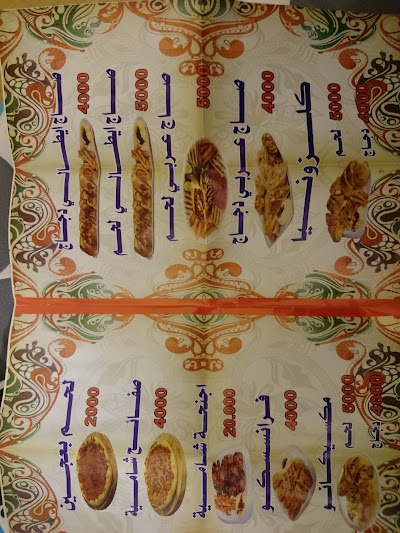 صاج ايطالي دجاج
4000
صاج ايطالي لحم
5000
صاج عربي لحم
5000
صاج عربي دجاج
4000
كلزونيا
لحم 5000
دجاج 4000
لحم بعجين
2000
صفائح شامية
4000
اجنحة شامية
20.000
فرانسسكو
4000
مكسيكانو
لحم 5000
دجاج 4000